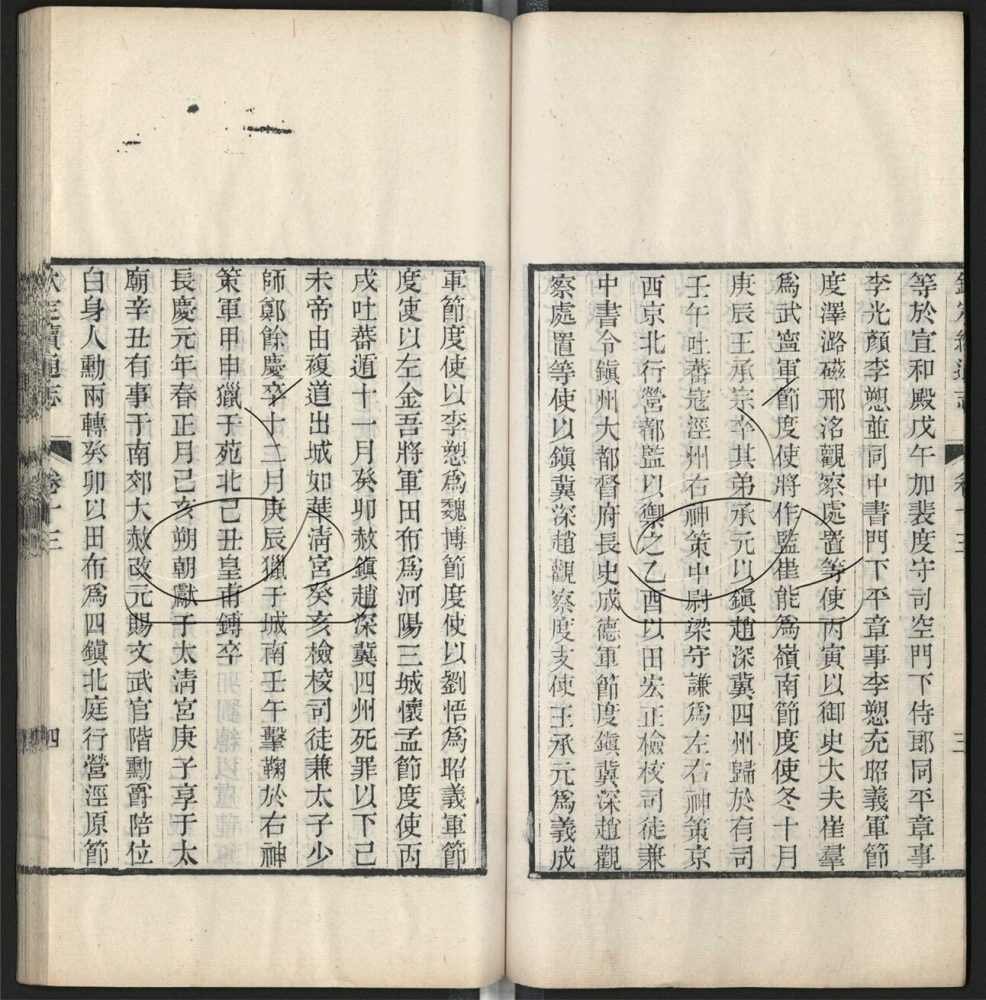 欽定續通志
卷十三
三
等於宣和殿戊午加裴度守司空門下侍郎同平章事
李光顏李愬並同中書門下平章事李愬充昭義軍節
度澤潞磁邢洺觀察處置等使丙寅以御史大夫崔羣
爲武寧軍節度使將作監崔能爲嶺南節度使冬十月
庚辰王承宗卒其弟承元以鎮趙深冀四州歸於有司
壬午吐蕃寇涇州右神策中尉梁守謙爲左右神策京
西京北行營都監以禦之乙酉以田宏正檢校司徒兼
中書令鎮州大都督府長史成德軍節度鎮冀深趙觀
察處置等使以鎮冀深趙觀察度支使王承元爲義成
軍節度使以李愬爲魏博節度使以劉悟爲昭義軍節
度使以左金吾將軍田布爲河陽三城懷孟節度使丙
戌吐蕃遁十一月癸卯赦鎮趙深冀四州死罪以下己
未帝由複道出城如華清宮癸亥檢校司徒兼太子少
師鄭餘慶卒十二月庚辰獵于城南壬午擊鞠於右神
策軍甲申獵于苑北己丑皇甫鎛卒
長慶元年春正月己亥朔朝獻于太清宮庚子享于太
廟辛丑有事于南郊大赦改元賜文武官階勳爵陪位
白身人勳兩轉癸卯以田布爲四鎮北庭行營涇原節
欽定續通志
卷十三
四